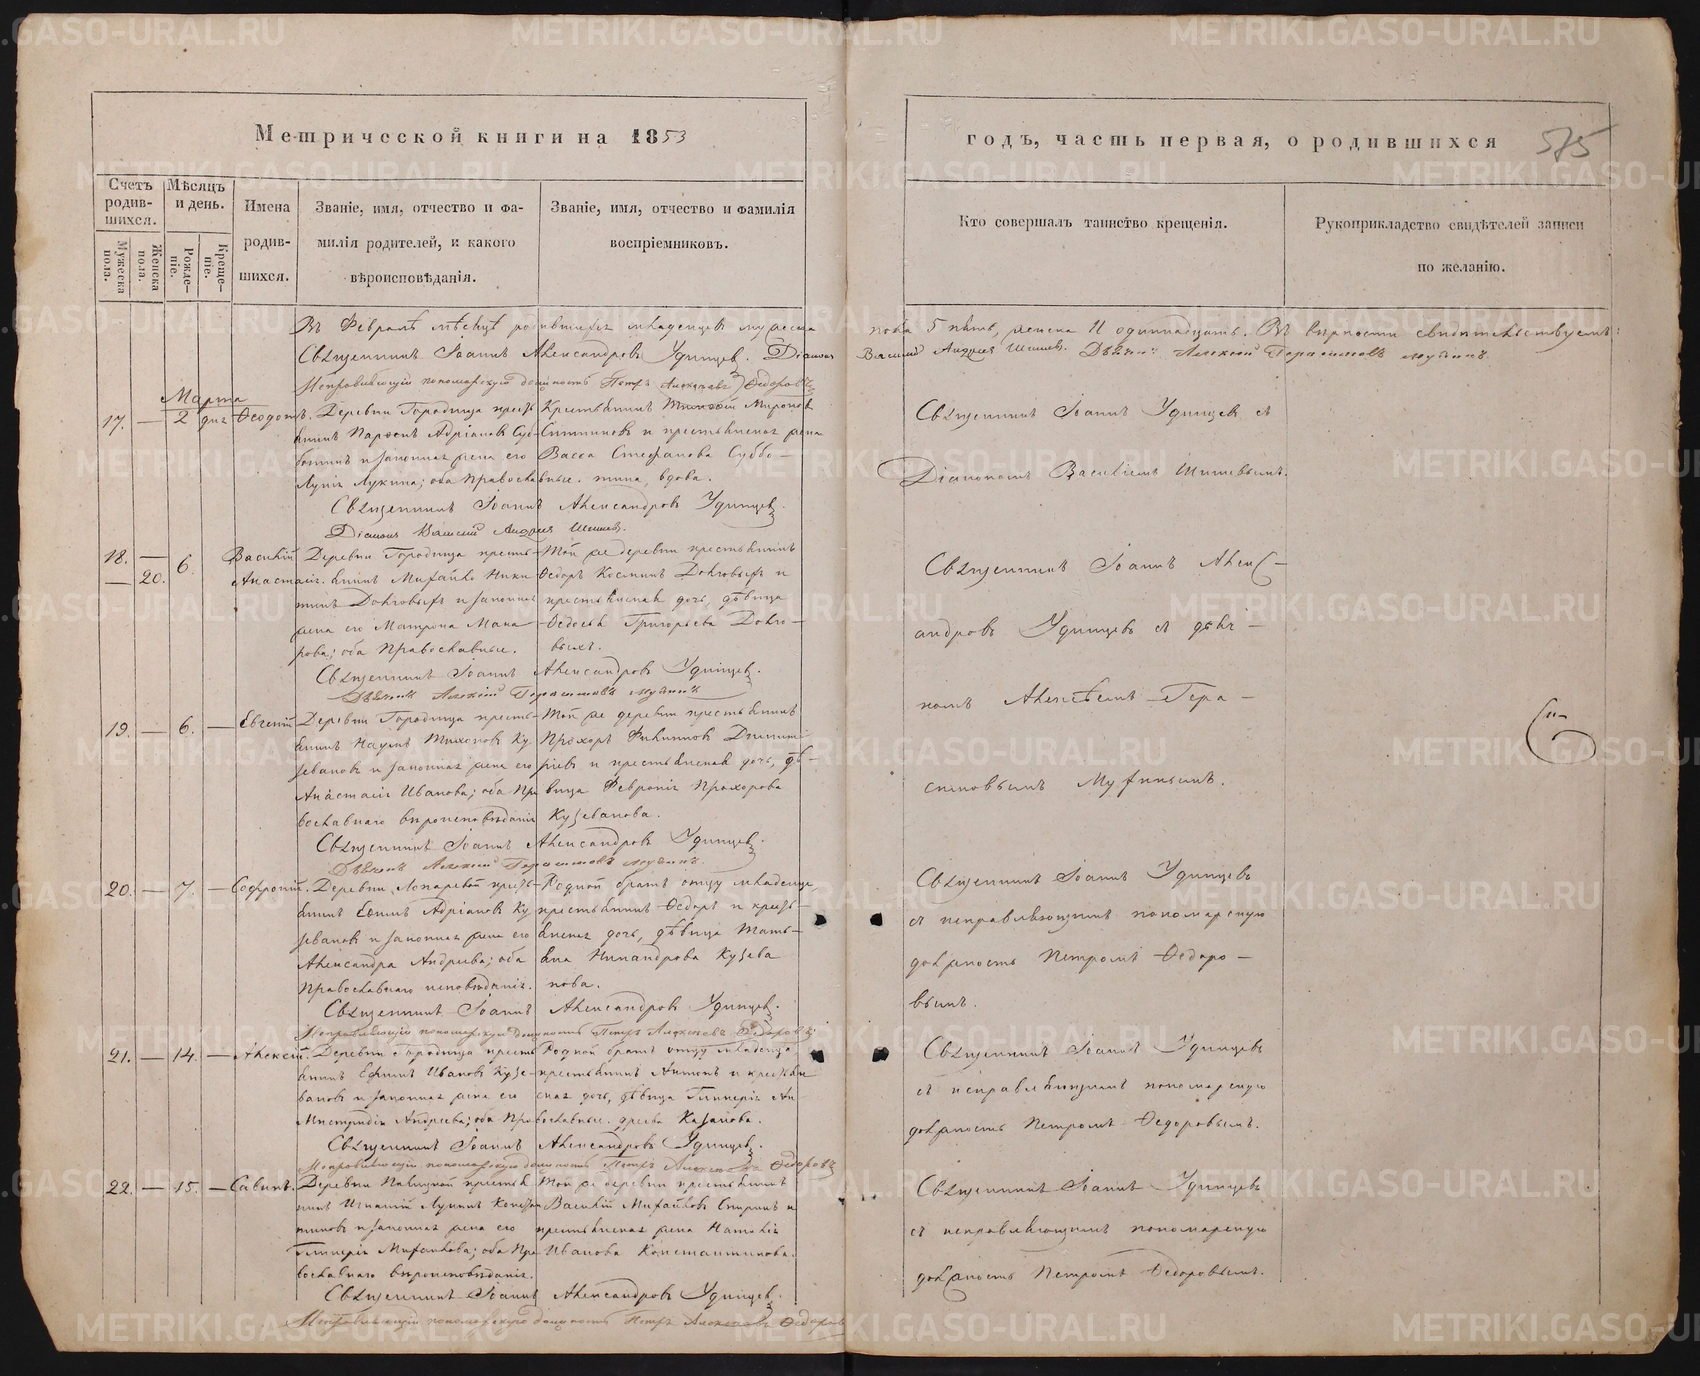 Метрической книги на 1853
годъ, часть первая, о родившихся 575
Счетъ родив- шихся.
Мужеска пола.
Женска пола.
Мѣсяцъ и день.
Рожде- ніе.
Креще- ніе.
Имена родив- шихся.
Званіе, имя, отчество и фа-
милія родителей, и какого
вѣроисповѣданія.
Званіе, имя, отчество и фамилія
воспріемниковъ.
Кто совершалъ таинство крещенія.
Рукоприкладство свидѣтелей записи
по желанію.
Въ Февралѣ мѣсяцѣ родившихся младенцевъ мужеска
пола 5 пять, женска 11 одиннадцать. Въ вѣрности свидѣтельствуемъ:
Священникъ Іоаннъ Александровъ Удинцевъ. Діаконъ
Василій Андреевъ Шишевъ. Дьячекъ Алексій Герасимовъ
Исправляющій пономарскую должность Петръ Алексѣевъ Ѳедоровъ
Марта
17. — 2 дня Ѳеодотъ.
Деревни Городища кресть-
янинъ Адріановъ Суб-
ботинъ и законная жена его
Лукина; оба Православные.
Крестьянинъ Мироновъ
Ситниковъ и крестьянская жена
Васса Стефанова Суббо-
тина, вдова.
Священникъ Іоаннъ Удинцевъ съ
Діакономъ Василіемъ Шишевымъ.
Священникъ Іоаннъ Александровъ Удинцевъ.
Діаконъ Василій Андреевъ Шишевъ.
18. — 6. Василій
— 20. Анастасія.
Деревни Городища кресть-
янинъ Михайло Ники-
тинъ Долговыхъ и законная
жена его Матрона Мака-
рова; оба Православные.
Той же деревни крестьянинъ
Ѳедоръ Косминъ Долговыхъ и
крестьянская дочь, дѣвица
Ѳедосья Григорьева Долго-
выхъ.
Священникъ Іоаннъ Алекс-
андровъ Удинцевъ съ дьяч-
комъ Алексѣемъ Гера-
симовымъ
Священникъ Іоаннъ Александровъ Удинцевъ.
Дьячекъ Алексій Герасимовъ
19. — 6. — Евгеній
Деревни Городища кресть-
янинъ Наумъ Тихоновъ Ку-
зевановъ и законная жена его
Анастасія Иванова; оба Пра-
вославнаго вѣроисповѣданія
Той же деревни крестьянинъ
Прохоръ Филипповъ Димит-
ріевъ и крестьянская дочь, дѣ-
вица Февронія Прохорова
Кузеванова.
Священникъ Іоаннъ Александровъ Удинцевъ.
Дьячекъ Алексій Герасимовъ
20. — 7. — Софроній.
Деревни Лопаревой кресть-
янинъ Ефимъ Адріановъ Ку-
зевановъ и законная жена его
Александра Андреева; оба
Православнаго исповѣданія.
Родной братъ отцу младенца,
крестьянинъ Ѳедоръ и кресть-
янская дочь, дѣвица Тать-
яна Никандрова Кузева-
нова.
Священникъ Іоаннъ Удинцевъ
съ исправляющимъ пономарскую
должность Петромъ Ѳедоро-
вымъ.
Священникъ Іоаннъ Александровъ Удинцевъ.
Исправляющій пономарскую должность Петръ Алексѣевъ Ѳедоровъ
21. — 14. — Алексій.
Деревни Городища кресть-
янинъ Ефимъ Ивановъ Кузе-
вановъ и законная жена его
Андреева; оба Пра-
вославные.
Родной братъ отцу младенца
крестьянинъ Антонъ и крестьян-
ская дочь, дѣвица Гликерія Ан-
дреева
Священникъ Іоаннъ Удинцевъ
съ исправляющимъ пономарскую
должность Петромъ Ѳедоровымъ.
Священникъ Іоаннъ Александровъ Удинцевъ.
Исправляющій пономарскую должность Петръ Алексѣевъ Ѳедоровъ
22. — 15. — Савинъ.
Деревни крестья-
нинъ Игнатій Лукинъ Констан-
тиновъ и законная жена его
Гликерія Михайлова; оба Пра-
вославнаго вѣроисповѣданія.
Той же деревни крестьянинъ
Василій Михайловъ Спиринъ и
крестьянская жена Наталія
Иванова Константинова.
Священникъ Іоаннъ Удинцевъ
съ исправляющимъ пономарскую
должность Петромъ Ѳедоровымъ.
Священникъ Іоаннъ Александровъ Удинцевъ.
Исправляющій пономарскую должность Петръ Алексѣевъ Ѳедоровъ
METRIKI.GASO-URAL.RU